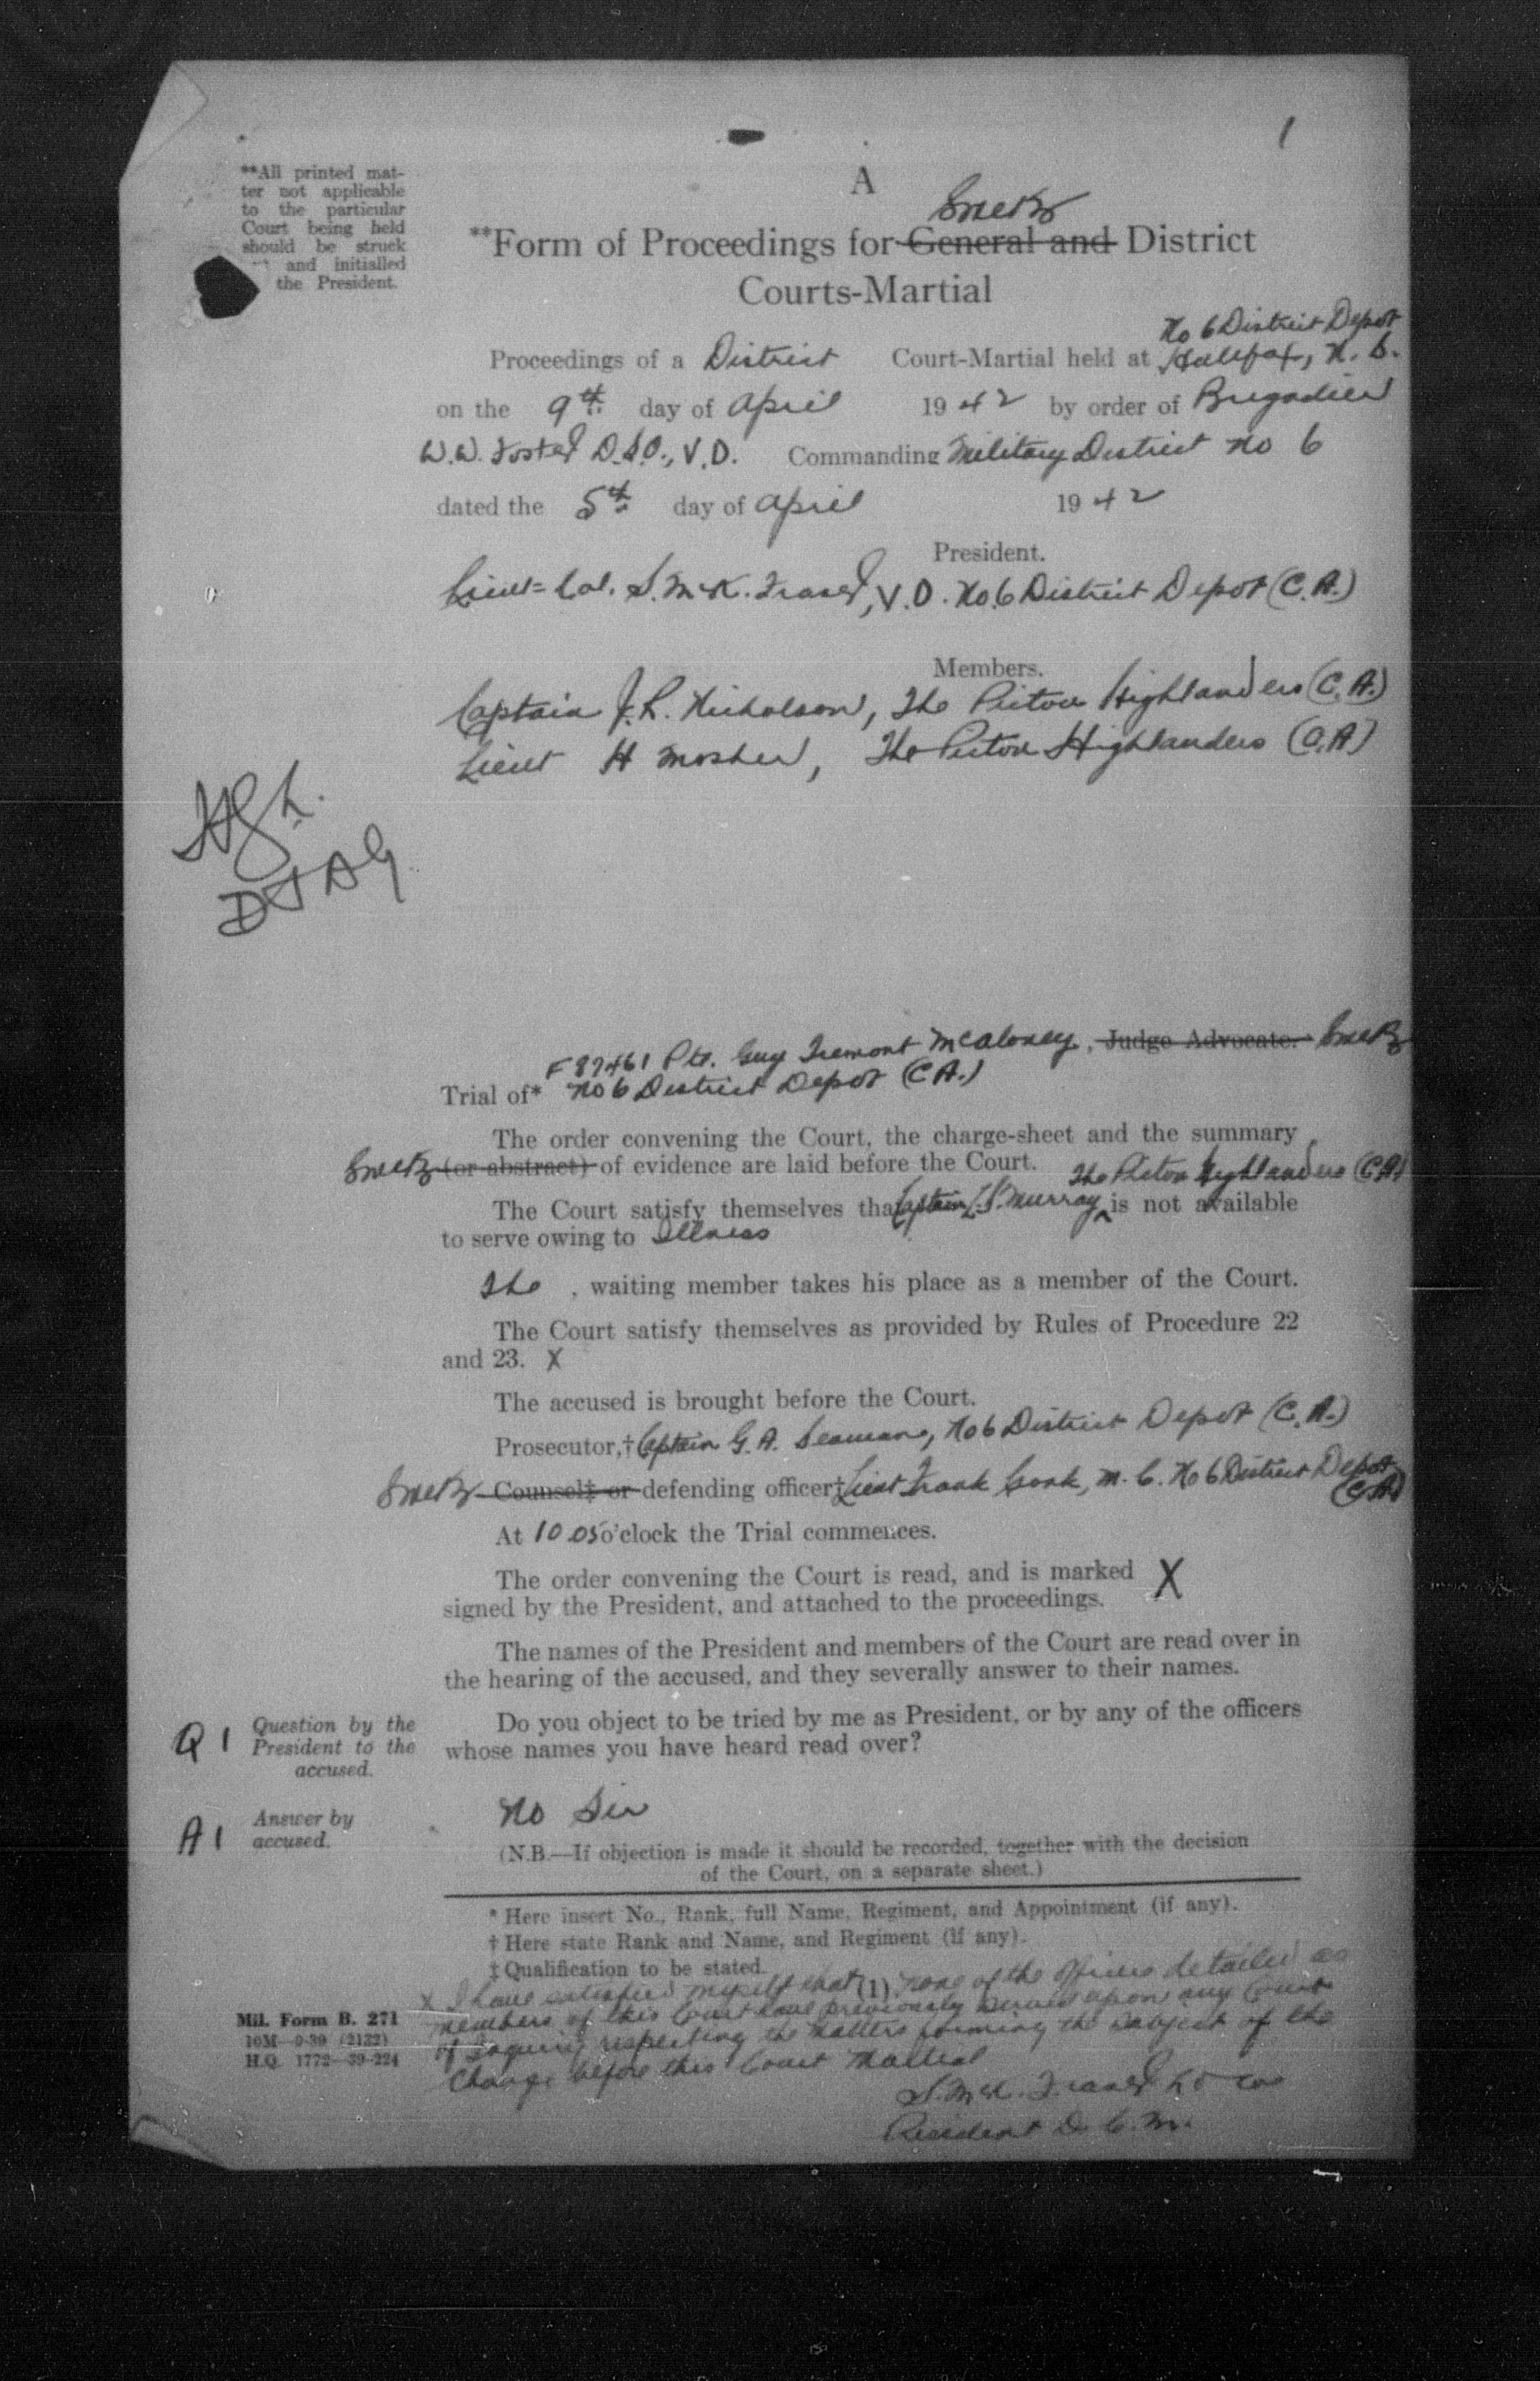 1
**All printed mat-
ter not applicable
to the particular
Court being held
should be struck
and initialled
the President.
A
**Form of Proceedings for General and District
Courts-Martial
No 6 District Depot
Proceedings of a District Court-Martial held at Halifax, N. S.
on the 9th day of April 1942 by order of Brigadier
W.W. Foster D.S.O., V.D. Commanding Military District No 6
dated the 5th day of April 1942
President.
Lieut-Col. S. McK. Fraser, V.D. No. 6 District Depot (C.A.)
Members.
Captain J. R. Nicholson, The Pictou Highlanders (C.A.)
Lieut H Mosher, The Pictou Highlanders (C.A)
DJAG
F 87461 Pte. Guy Tremont McAloney, Judge Advocate.
Trial of* No 6 District Depot (C A.)
The order convening the Court, the charge-sheet and the summary
(or abstract) of evidence are laid before the Court.
The Pictou Highlanders (C.A)
The Court satisfy themselves that Captain L. S. Murray ^ is not available
to serve owing to Illness
The , waiting member takes his place as a member of the Court.
The Court satisfy themselves as provided by Rules of Procedure 22
and 23. X
The accused is brought before the Court.
Prosecutor,† Captain G. A. Seamans, No 6 District Depot (C.A.)
Counsel‡ or defending officer‡ Lieut Frank Cook, M.C. No 6 District Depot
(C A)
At 10 05 o'clock the Trial commences.
The order convening the Court is read, and is marked X
signed by the President, and attached to the proceedings.
The names of the President and members of the Court are read over in
the hearing of the accused, and they severally answer to their names.
Q 1 Question by the
President to the
accused.
Do you object to be tried by me as President, or by any of the officers
whose names you have heard read over?
A 1 Answer by
accused.
No Sir
(N.B.—If objection is made it should be recorded, together with the decision
of the Court, on a separate sheet.)
* Here insert No., Rank, full Name, Regiment, and Appointment (if any).
† Here state Rank and Name, and Regiment (if any).
‡ Qualification to be stated.
X I have satisfied myself that (1) none of the officers detailed as
members of this Court have previously served upon any Court
of Inquiry respecting the matters forming the subject of the
charge before this Court Martial
S. McK. Fraser Lt Col
President D. C. M.
Mil. Form B. 271
10M—9-39 (2132)
H.Q. 1772—39-224